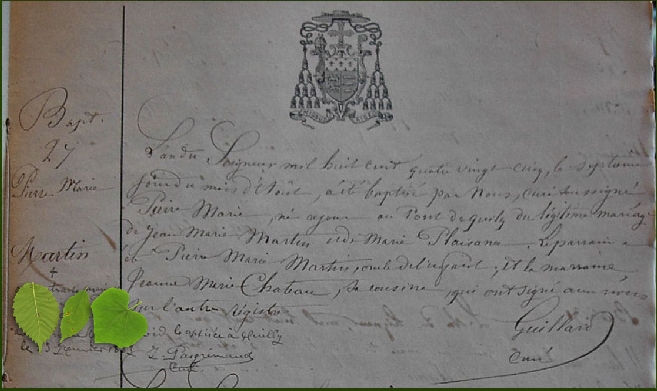 Bapt.
27
Pierre Marie
Martin
L'an du Seigneur mil huit cent quatre vingt cinq, le septième
jour du mois d'Août, a été baptisé par Nous, curé soussigné
Pierre Marie, né au Pont de du légitime mariage
de Jean Marie Martin et de Marie Plaisana. Le parrain a
été Pierre Marie Martin, oncle de l'enfant; et la marraine,
Jeanne Marie Chateau, sa cousine, qui ont signé avec nous
sur l'autre registre
Guillard
Curé
baptisée à
le Janvier
Curé